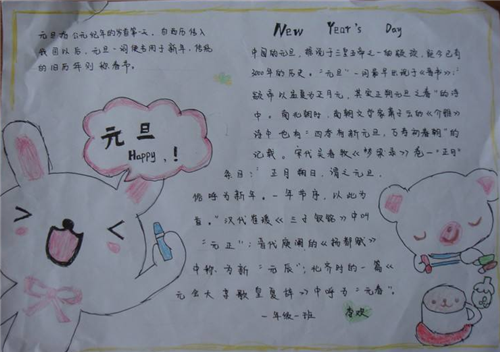 元旦为公元纪年的岁首第一天，自西历传入
我国以后，元旦一词便专用于新年，传统
的旧历年则称春节。
元旦
Happy,!
New Year's Day
中国的元旦，据说于三皇五帝之一的颛顼，距今已有
3000年的历史。"元旦"一词最早出现于《晋书》：
颛帝以孟夏为正月元，其实正朔元旦之春"的诗
中。南北朝时，南朝文学家萧子云的《介雅》
诗中也有"四季新元旦，万寿初春朝"的
记载。宋代吴自牧《梦粱录》卷一"正月"
条目："正月朔日，谓之元旦，
俗呼为新年。一年节序，以此为
首。"汉代崔瑗《三子钗铭》中叫
"元正"；晋代庾阐的《扬都赋》
中称为新"元辰"；北齐时的一篇《
元会大享歌皇夏辞》中呼为"元春"。
一年级一班